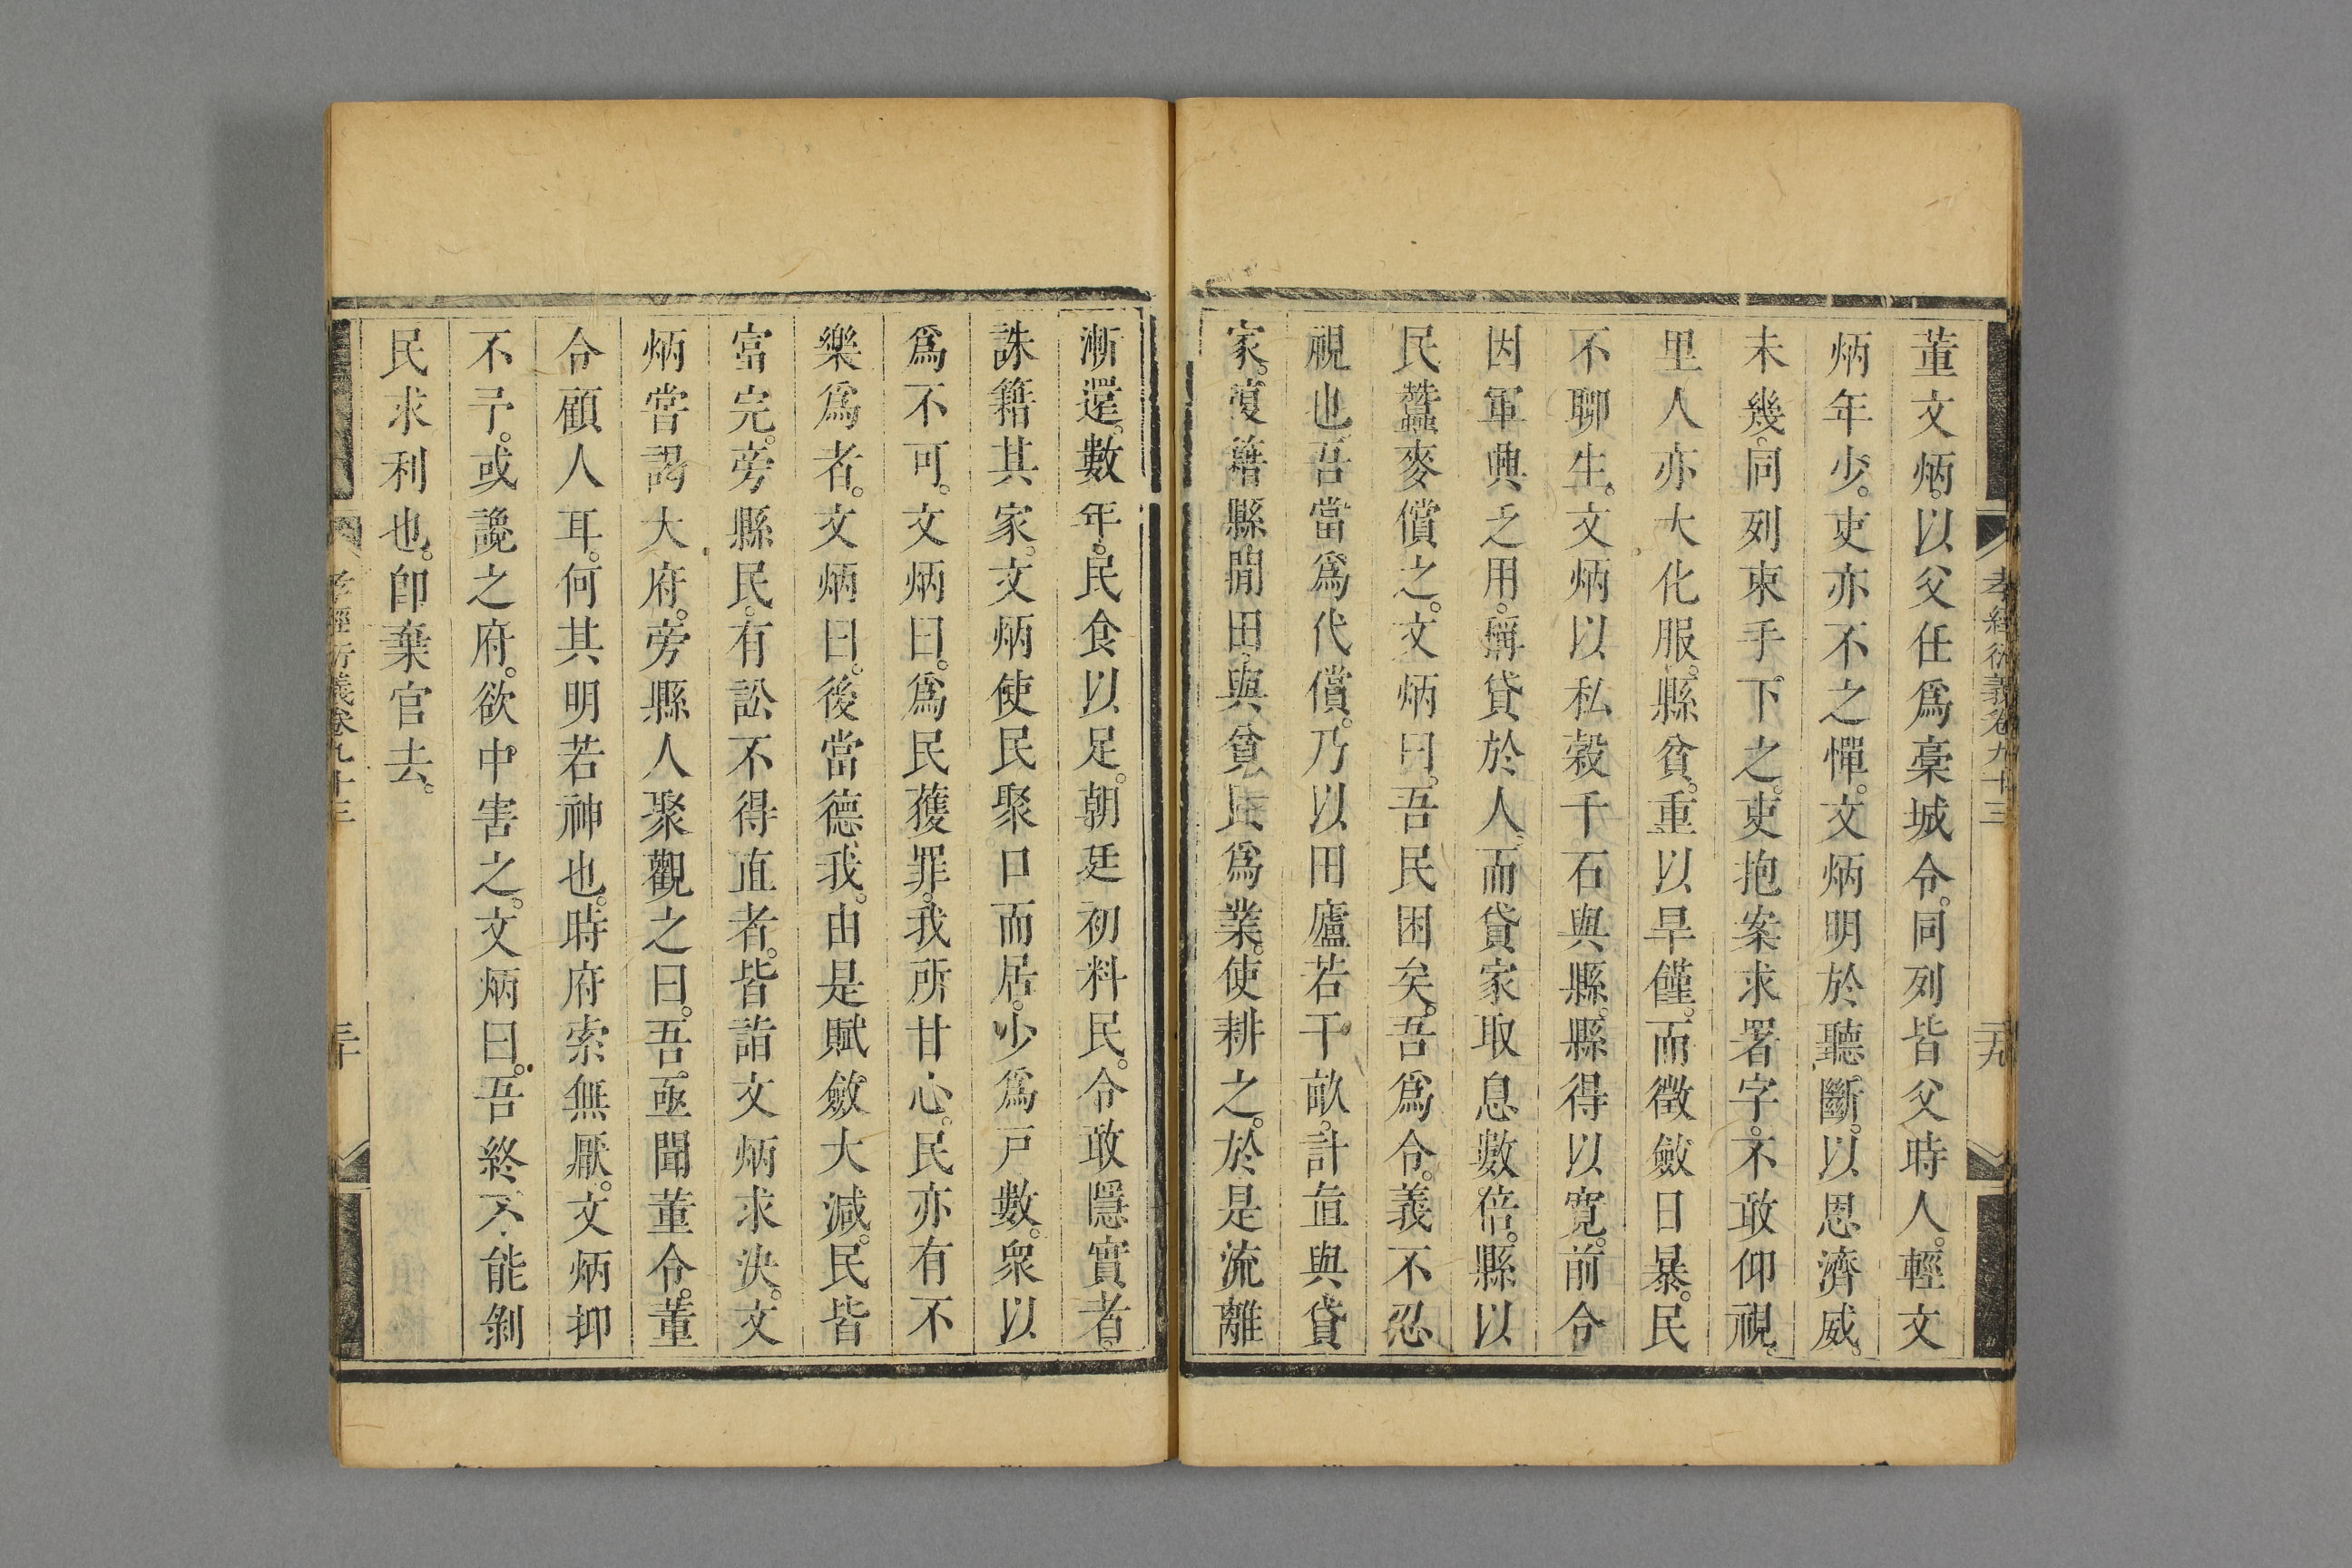 孝經衍義卷九十三
二十九
董文炳。以父任爲槀城令。同列皆父時人。輕文
炳年少。吏亦不之憚。文炳明於聽斷。以恩濟威。
未幾。同列束手下之。吏抱案求署字。不敢仰視。
里人亦大化服。縣貧。重以旱僅。而徵斂日暴。民
不聊生。文炳以私穀千石與縣。縣得以寬。前令
因軍興乏用。稱貸於人。而貸家取息數倍。縣以
民蠶麥償之。文炳曰。吾民困矣。吾爲令。義不忍
視也。吾當爲代償。乃以田廬若干畝。計直與貸
家。復籍縣閒田。與貧民爲業。使耕之。於是流離
漸還。數年。民食以足。朝廷初料民。令敢隱實者。
誅籍其家。文炳使民聚口而居。少爲戸數。衆以
爲不可。文炳曰。爲民獲罪。我所甘心。民亦有不
樂爲者。文炳曰。後當德我。由是賦斂大減。民皆
富完。旁縣民。有訟不得直者。皆詣文炳求決。文
炳嘗謁大府。旁縣人聚觀之曰。吾亟聞董令。董
令顧人耳。何其明若神也。時府索無厭。文炳抑
不予。或讒之府。欲中害之。文炳曰。吾終不能剝
民求利也。卽棄官去。
孝經衍義卷九十三
三十